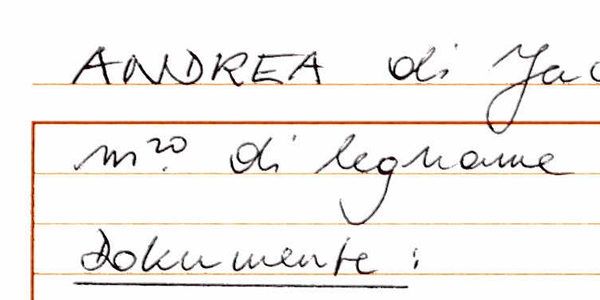 ANDREA di Jac
m.ro di legname
Dokumente: